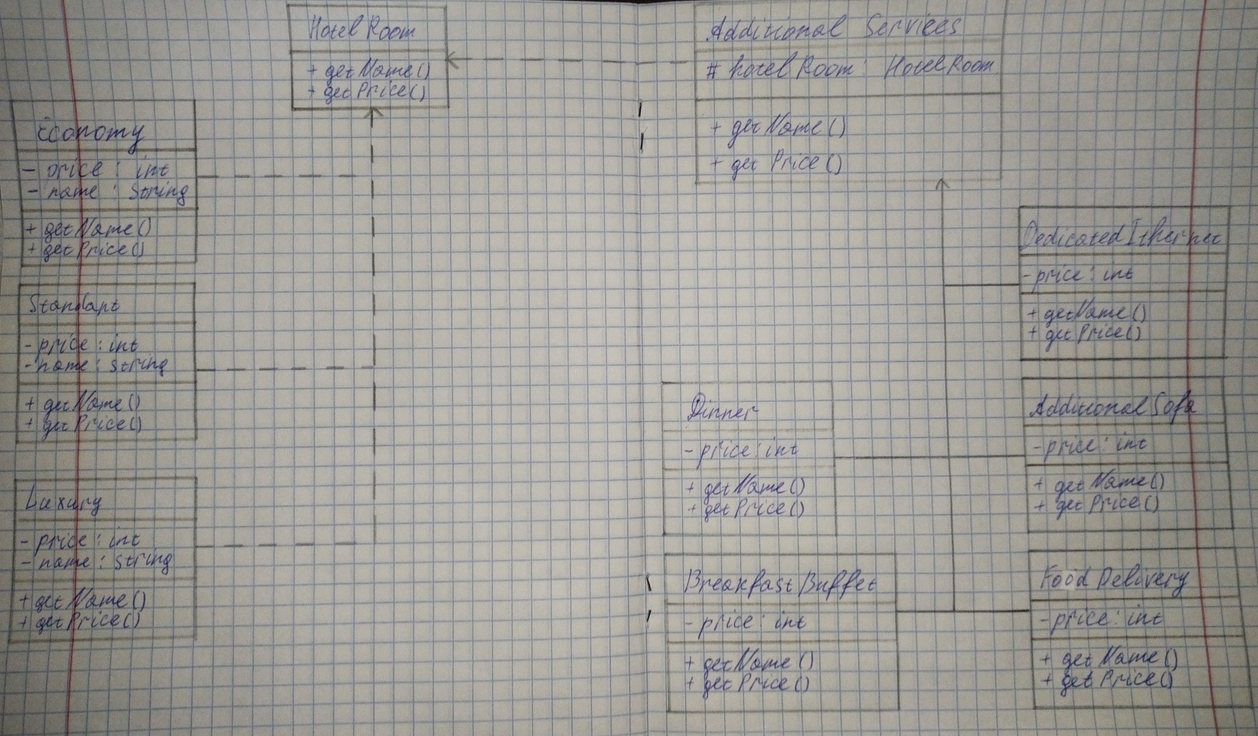 Hotel Room
+ getName()
+ getPrice()
Additional Services
# hotelRoom: HotelRoom
+ getName()
+ getPrice()
Economy
- price : int
- name : String
+ getName()
+ getPrice()
Standart
- price : int
- name : String
+ getName()
+ getPrice()
Luxury
- price : int
- name : String
+ getName()
+ getPrice()
DedicatedEthernet
- price : int
+ getName()
+ getPrice()
Dinner
- price : int
+ getName()
+ getPrice()
AdditionalSofa
- price : int
+ getName()
+ getPrice()
BreakfastBuffet
- price : int
+ getName()
+ getPrice()
Food Delivery
- price : int
+ getName()
+ getPrice()